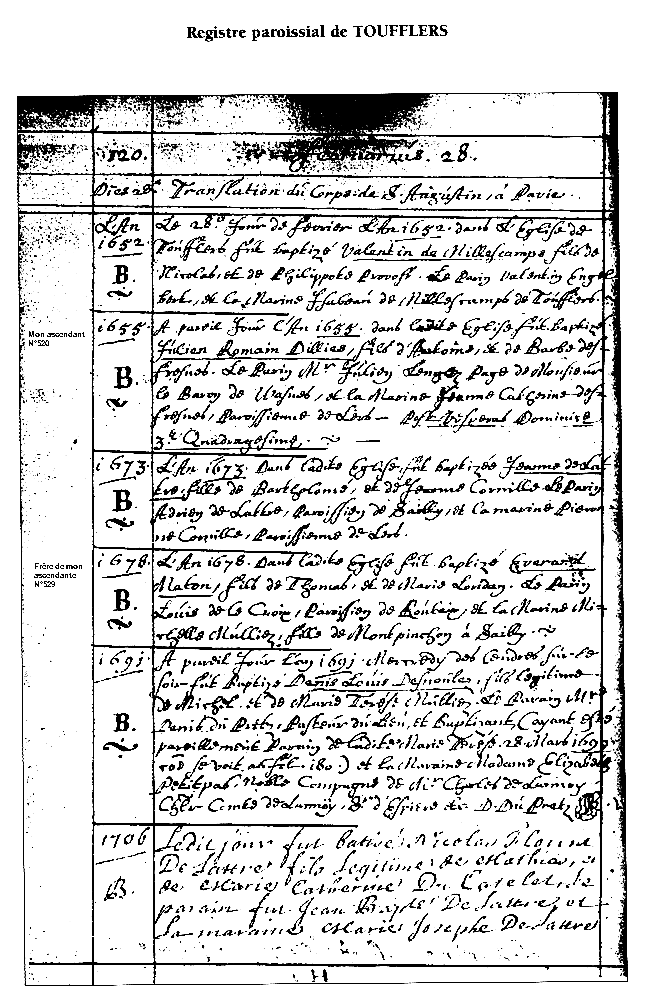 Registre paroissial de TOUFFLERS
120. 28.
Dies 28ª Translation du Corps de S. Augustin, à Pavie.
L'An 1652. B. Le 28e Jour de fevrier L'An 1652. dans L'Eglise de
Toufflers fut baptizé Valentin de Millescamps fils de
Nicolas, et de Philippote Provost. Le Parin Valentin Engel
bert, et la Marine Isabeau de Millescamps de Toufflers.
Mon ascendant
N°520
1655. B. A pareil Jour L'An 1655. dans ladite Eglise fut baptizé
Julien Romain Dillies, fils d'Antoine, et de Barbe des
fresnes. Le Parin Mr Julien Page de Monsieur
le Baron de Wasnes, et la Marine Jeanne Catherine des
fresnes, Paroissienne de Lers — Post Vesperas Dominicæ
3æ Quadragesimæ.
1673. B. L'An 1673. Dans ladite Eglise fut baptizée Jeanne de Lat
tre fille de Bartholomé, et de Jeanne Cornille Le Parin
Adrien de Lattre, Paroissien de Sailly, et la marine Pieron
ne Cornille, Paroissienne de Lers.
Frère de mon
ascendante
N°529
1678. B. L'An 1678. Dans ladite Eglise fut baptizé Everard
Maton, fils de Thomas, et de Marie Lordan. Le Parin
Louis de le Croix, Paroissien de Roubaix, et la Marine Mi-
chelle Mulliez, fille de Montpinchon à Sailly.
1691. B. A pareil Jour L'an 1691. Mercredy des Cendres sur le
soir fut Baptizé Denis Louis Desnoulez, fils legitime
de Michel, et de Marie Terese Mulliez. Le Parain Mre
Denis du Pretz, Pasteur du Lieu, et Baptizant, Ayant esté
pareillement Parain de ladite Marie Terese. 28 Mars
se voit au fol. 180) et la Maraine Madame Elizabet
Petitpas, Noble Compagne de Mre Charles de Lannoy
Cher Comte de Lannoy, Sr d'Espiere D. Du Pretz
1706 B. Ledit jour fut batisé Nicolas
De Lattre fils Legitime de Mathias, et
de Marie Catherine Du Catelet, le
parain fut Jean Bapte De Lattre, et
La maraine Marie Josephe De Lattre